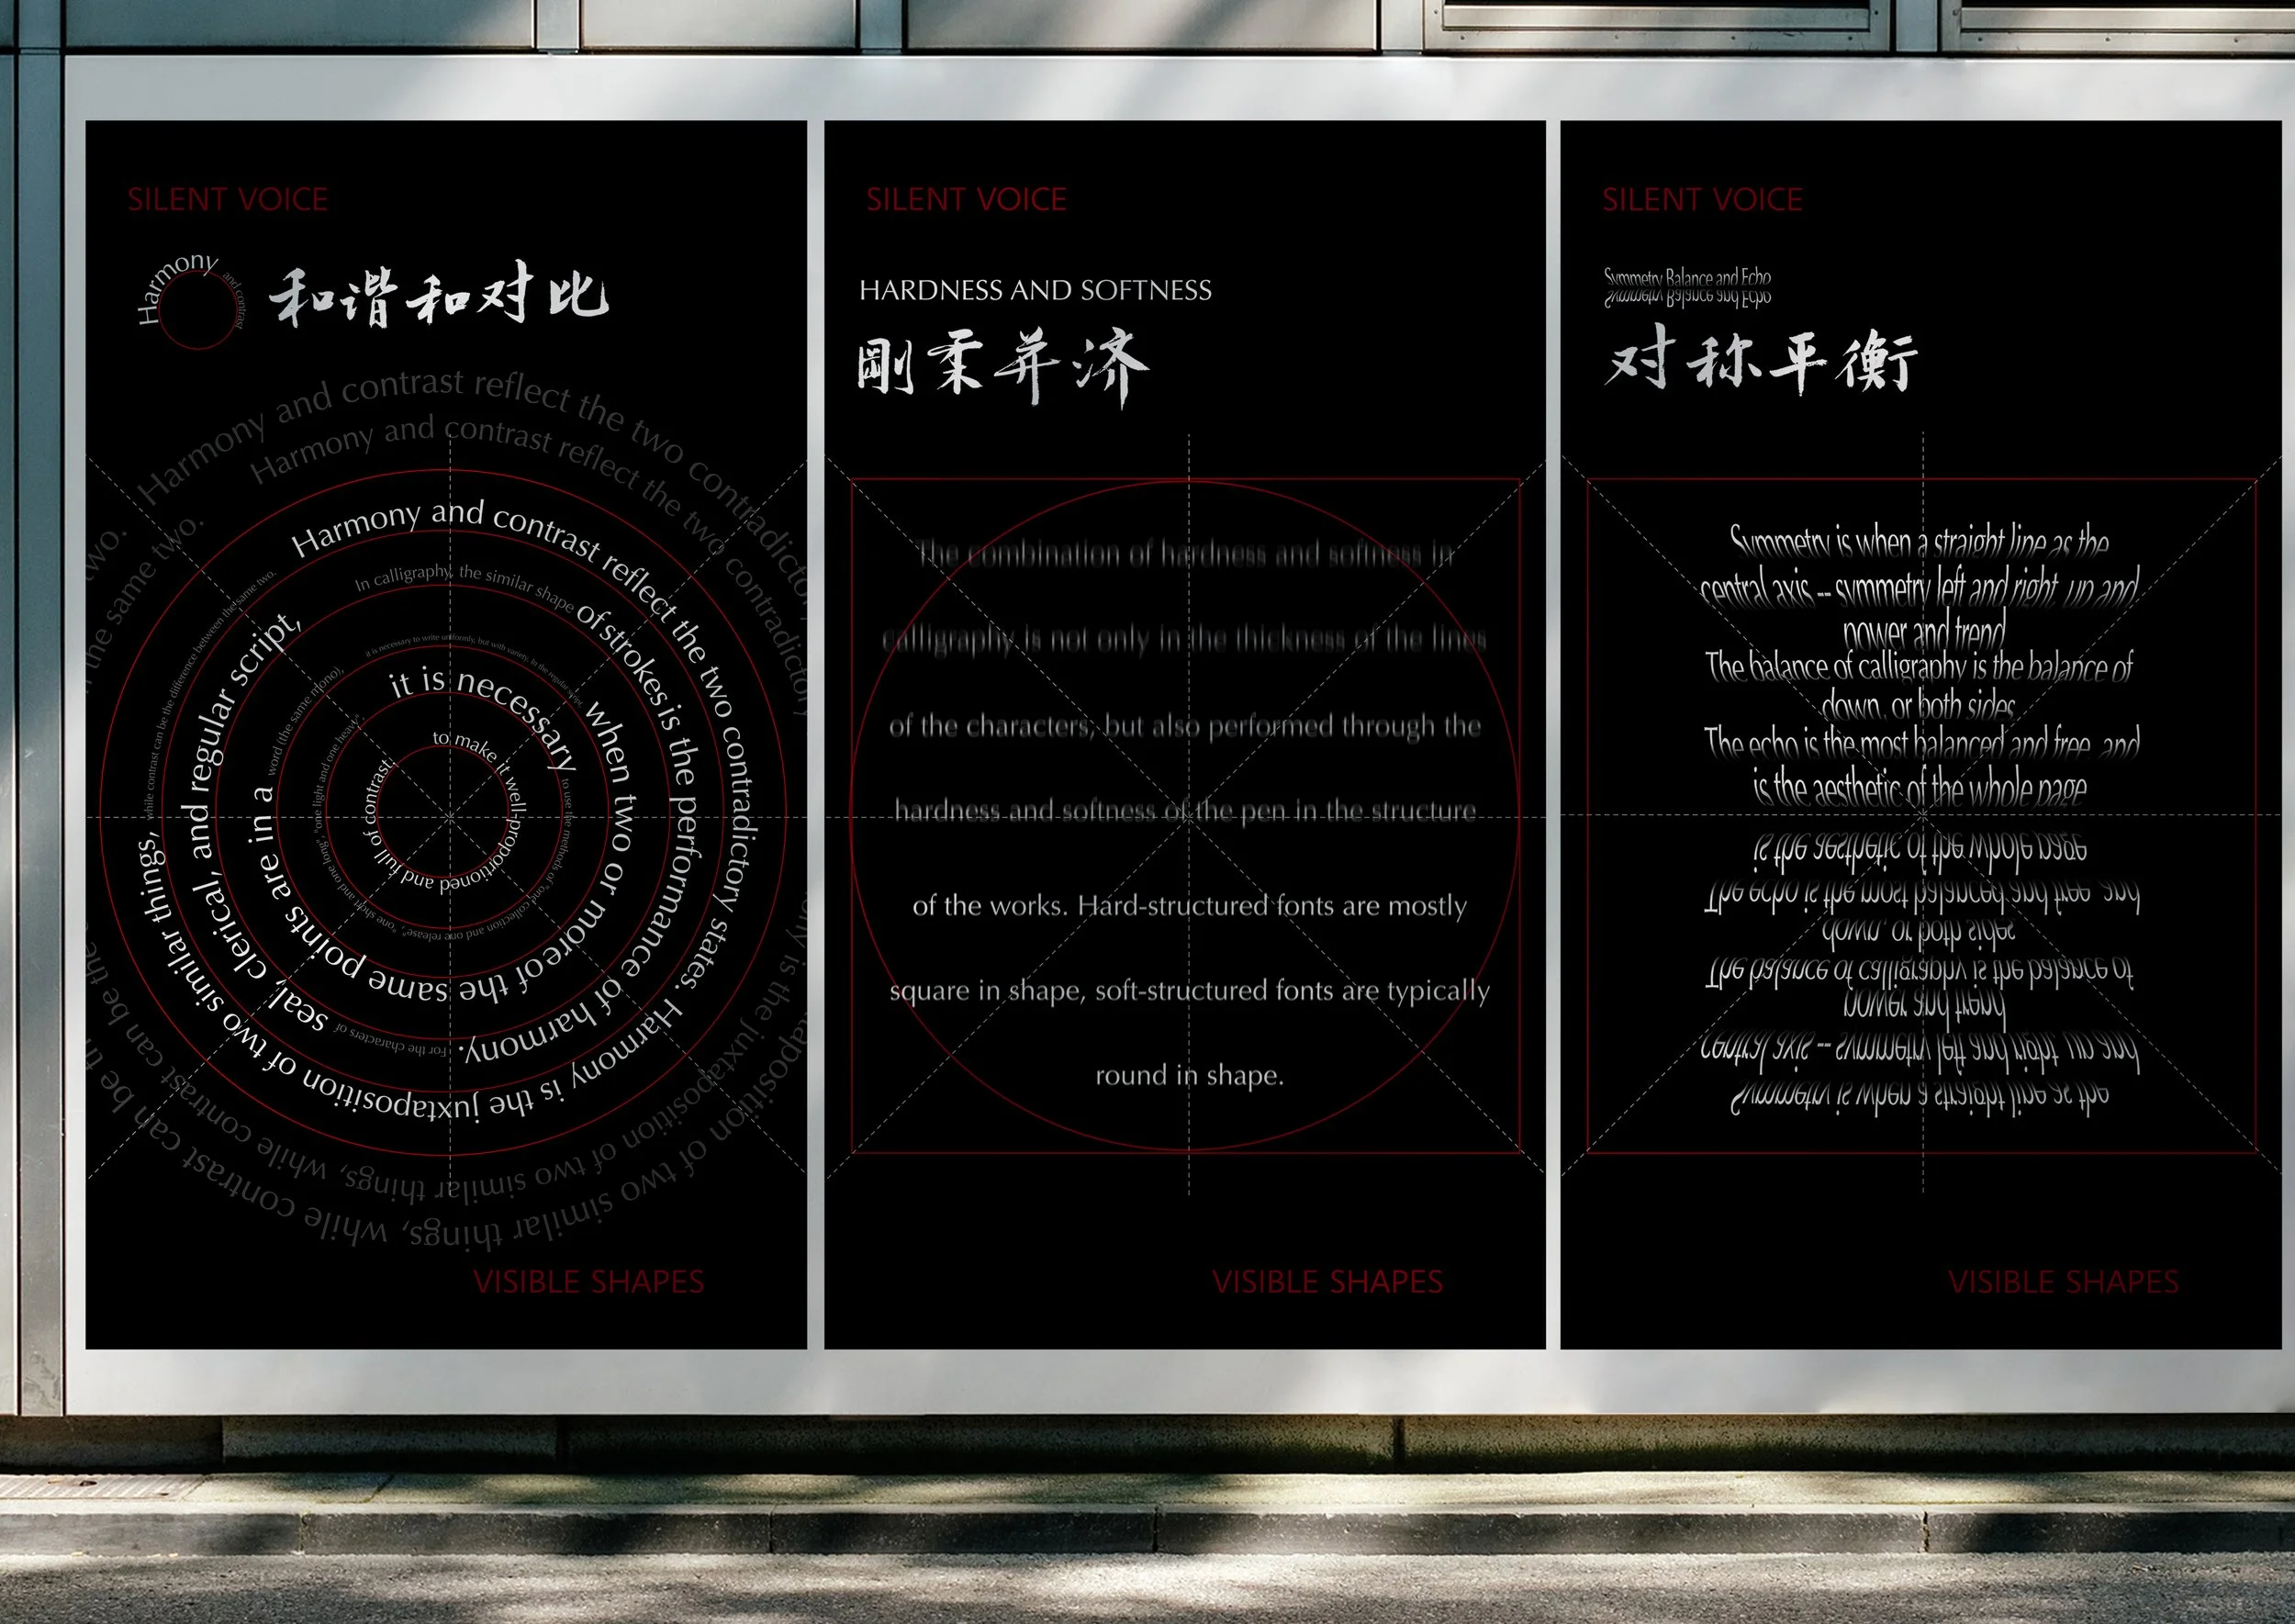 SILENT VOICE
Harmony and contrast
和谐和对比
Harmony and contrast reflect the two contradictory
position of two similar things, while contrast can be the
two.
Harmony and contrast reflect the two contradictory
is the juxtaposition of two similar things, while contrast can be the
in the same two.
Harmony and contrast reflect the two contradictory states. Harmony is the juxtaposition of two similar things, while contrast can be the difference between the same two.
In calligraphy, the similar shape of strokes is the performance of harmony. For the characters of seal, clerical, and regular script,
it is necessary to write uniformly, but with variety. In the regular script, when two or more of the same points are in a word (the same mono),
it is necessary to use the methods of "one collection and one release", "one short and one long", "one light and one heavy",
to make it well-proportioned and full of contrast.
VISIBLE SHAPES
SILENT VOICE
HARDNESS AND SOFTNESS
剛柔并济
The combination of hardness and softness in
calligraphy is not only in the thickness of the lines
of the characters, but also performed through the
hardness and softness of the pen in the structure
of the works. Hard-structured fonts are mostly
square in shape, soft-structured fonts are typically
round in shape.
VISIBLE SHAPES
SILENT VOICE
Symmetry Balance and Echo
Symmetry Balance and Echo
对称平衡
Symmetry is when a straight line as the
central axis -- symmetry left and right, up and
power and trend
The balance of calligraphy is the balance of
down, or both sides
The echo is the most balanced and free, and
is the aesthetic of the whole page
is the aesthetic of the whole page
The echo is the most balanced and free, and
down, or both sides
The balance of calligraphy is the balance of
power and trend
central axis -- symmetry left and right, up and
Symmetry is when a straight line as the
VISIBLE SHAPES